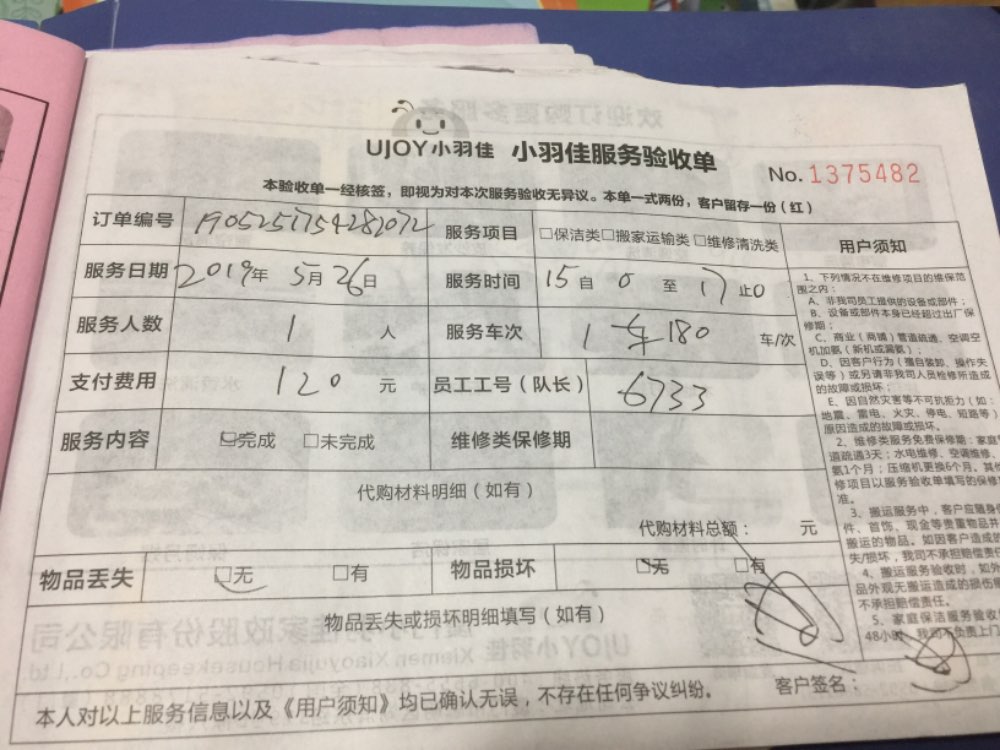 UJOY小羽佳 小羽佳服务验收单
No. 1375482
本验收单一经核签，即视为对本次服务验收无异议。本单一式两份，客户留存一份（红）
订单编号 1905251754282072 服务项目 □保洁类□搬家运输类□维修清洗类
服务日期 2019年 5月26日 服务时间 15自 0 至 17止0
服务人数 1 人 服务车次 1 车180 车/次
支付费用 120 元 员工工号（队长） 6733
服务内容 □完成 □未完成 维修类保修期
代购材料明细（如有）
代购材料总额： 元
物品丢失 □无 □有 物品损坏 □无 □有
物品丢失或损坏明细填写（如有）
客户签名：
本人对以上服务信息以及《用户须知》均已确认无误，不存在任何争议纠纷。
用户须知
1、下列情况不在维修项目的维保范
围之内：
A、非我司员工提供的设备或部件；
B、设备或部件本身已经超过出厂保
修期；
C、商业（商铺）管道疏通、空调空
机加氨（新机或漏氨）；
D、因客户行为（擅自装卸、操作失
误等）或另请非我司人员检修所造成
的故障或损坏；
E、因自然灾害等不可抗拒力（如：
地震、雷电、火灾、停电、短路等）
原因造成的故障或损坏。
2、维修类服务免费保修期：家庭管
道疏通3天；水电维修、空调维修、
氨1个月；压缩机更换6个月。其他
修项目以服务验收单填写的保修
准。
3、搬运服务中，客户应随身
件、首饰、现金等贵重物品并
搬运的物品。如因客户造成的
失/损坏，我司不承担赔偿责
4、搬运服务验收时，如外
品外观无搬运造成的损伤
不承担赔偿责任。
5、家庭保洁服务验收
48小时，我司不负责上门